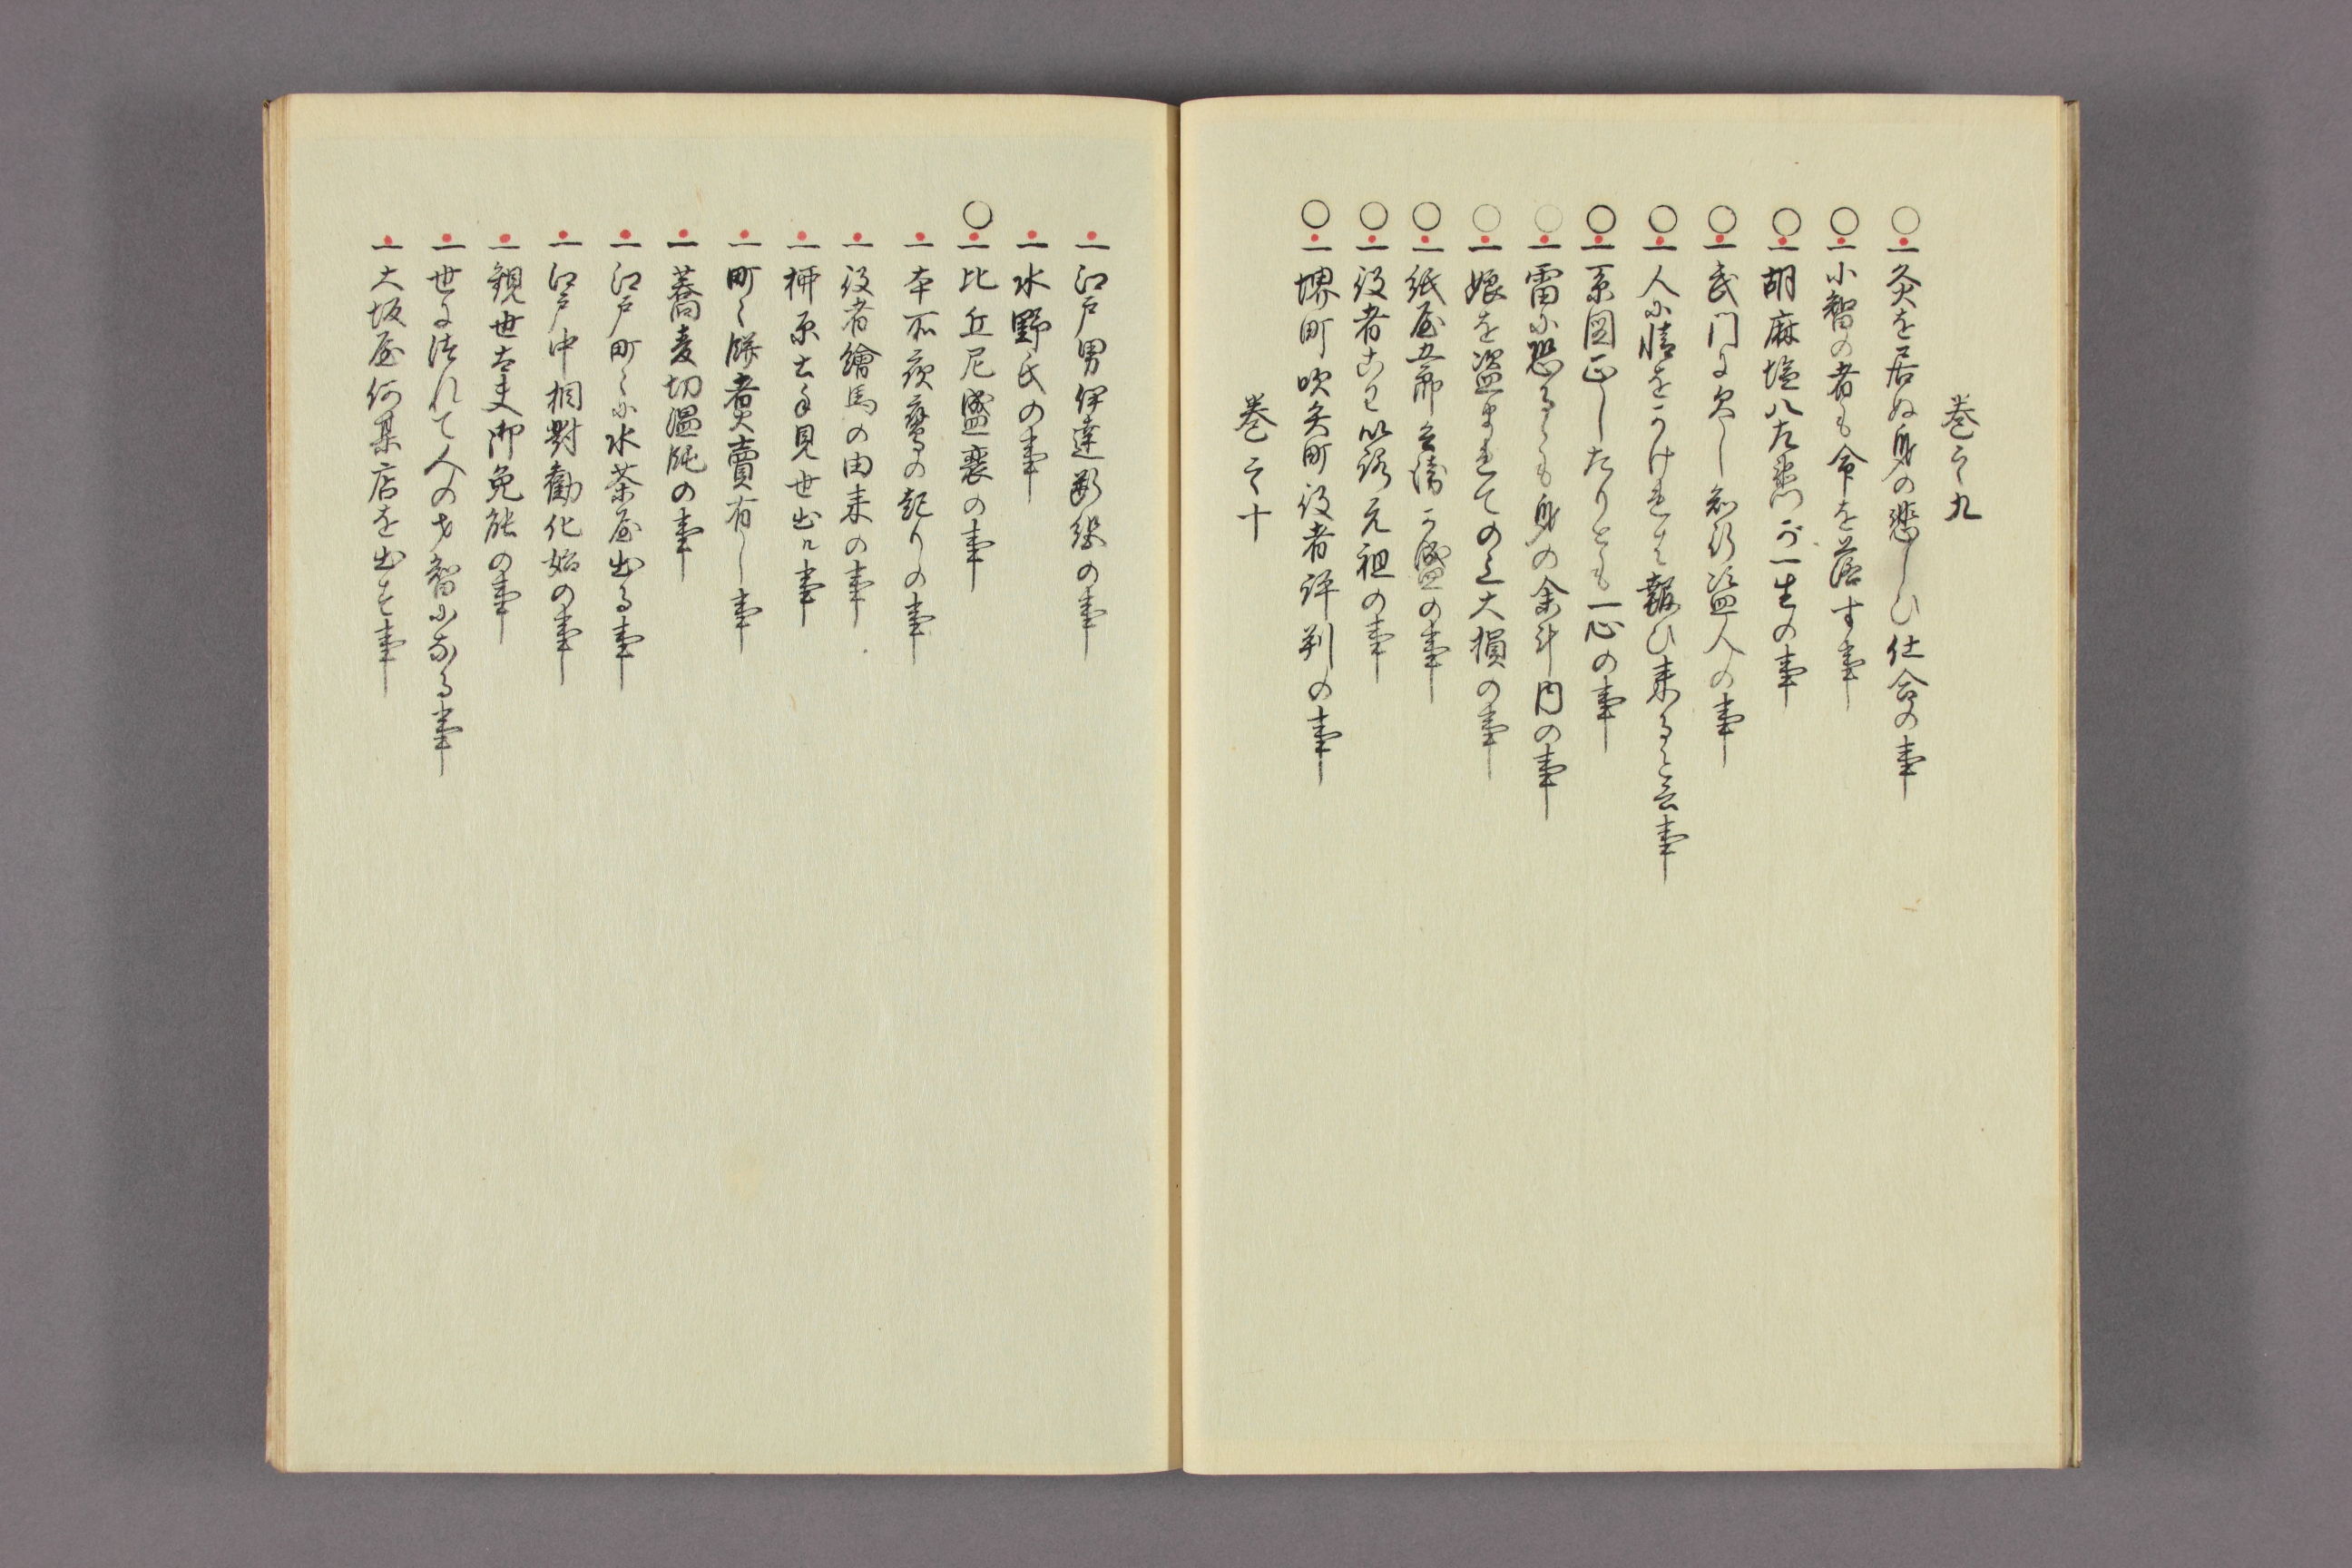 巻之九
○一灸を居ぬ身の悲しひ仕合の事
○一小智の者も命を落す事
○一胡麻塩八左衛門が一生の事
○一武門に欠し知行盗人の事
○一人に情をかけれは報ひ来ると云事
○一系図正したりとも一心の事
○一雷に恐るゝも身の余斗内の事
○一娘を盗まれての上大損の事
○一紙屋五郎兵衛か盛の事
○一役者こわ以路元祖の事
○一堺町吹矢町役者評判の事
巻之十
一江戸男伊達断絶の事
一水野氏の事
○一比丘尼盛衰の事
一本所夜鷹の起りの事
一役者繪馬の由来の事
一柳原土手見世出ル事
一町々餅煑賣有し事
一蕎麦切温飩の事
一江戸町々に水茶屋出る事
一江戸中相對勸化始の事
一観世太夫御免能の事
一世に従れて人の才智になる事
一大坂屋何某店を出す事